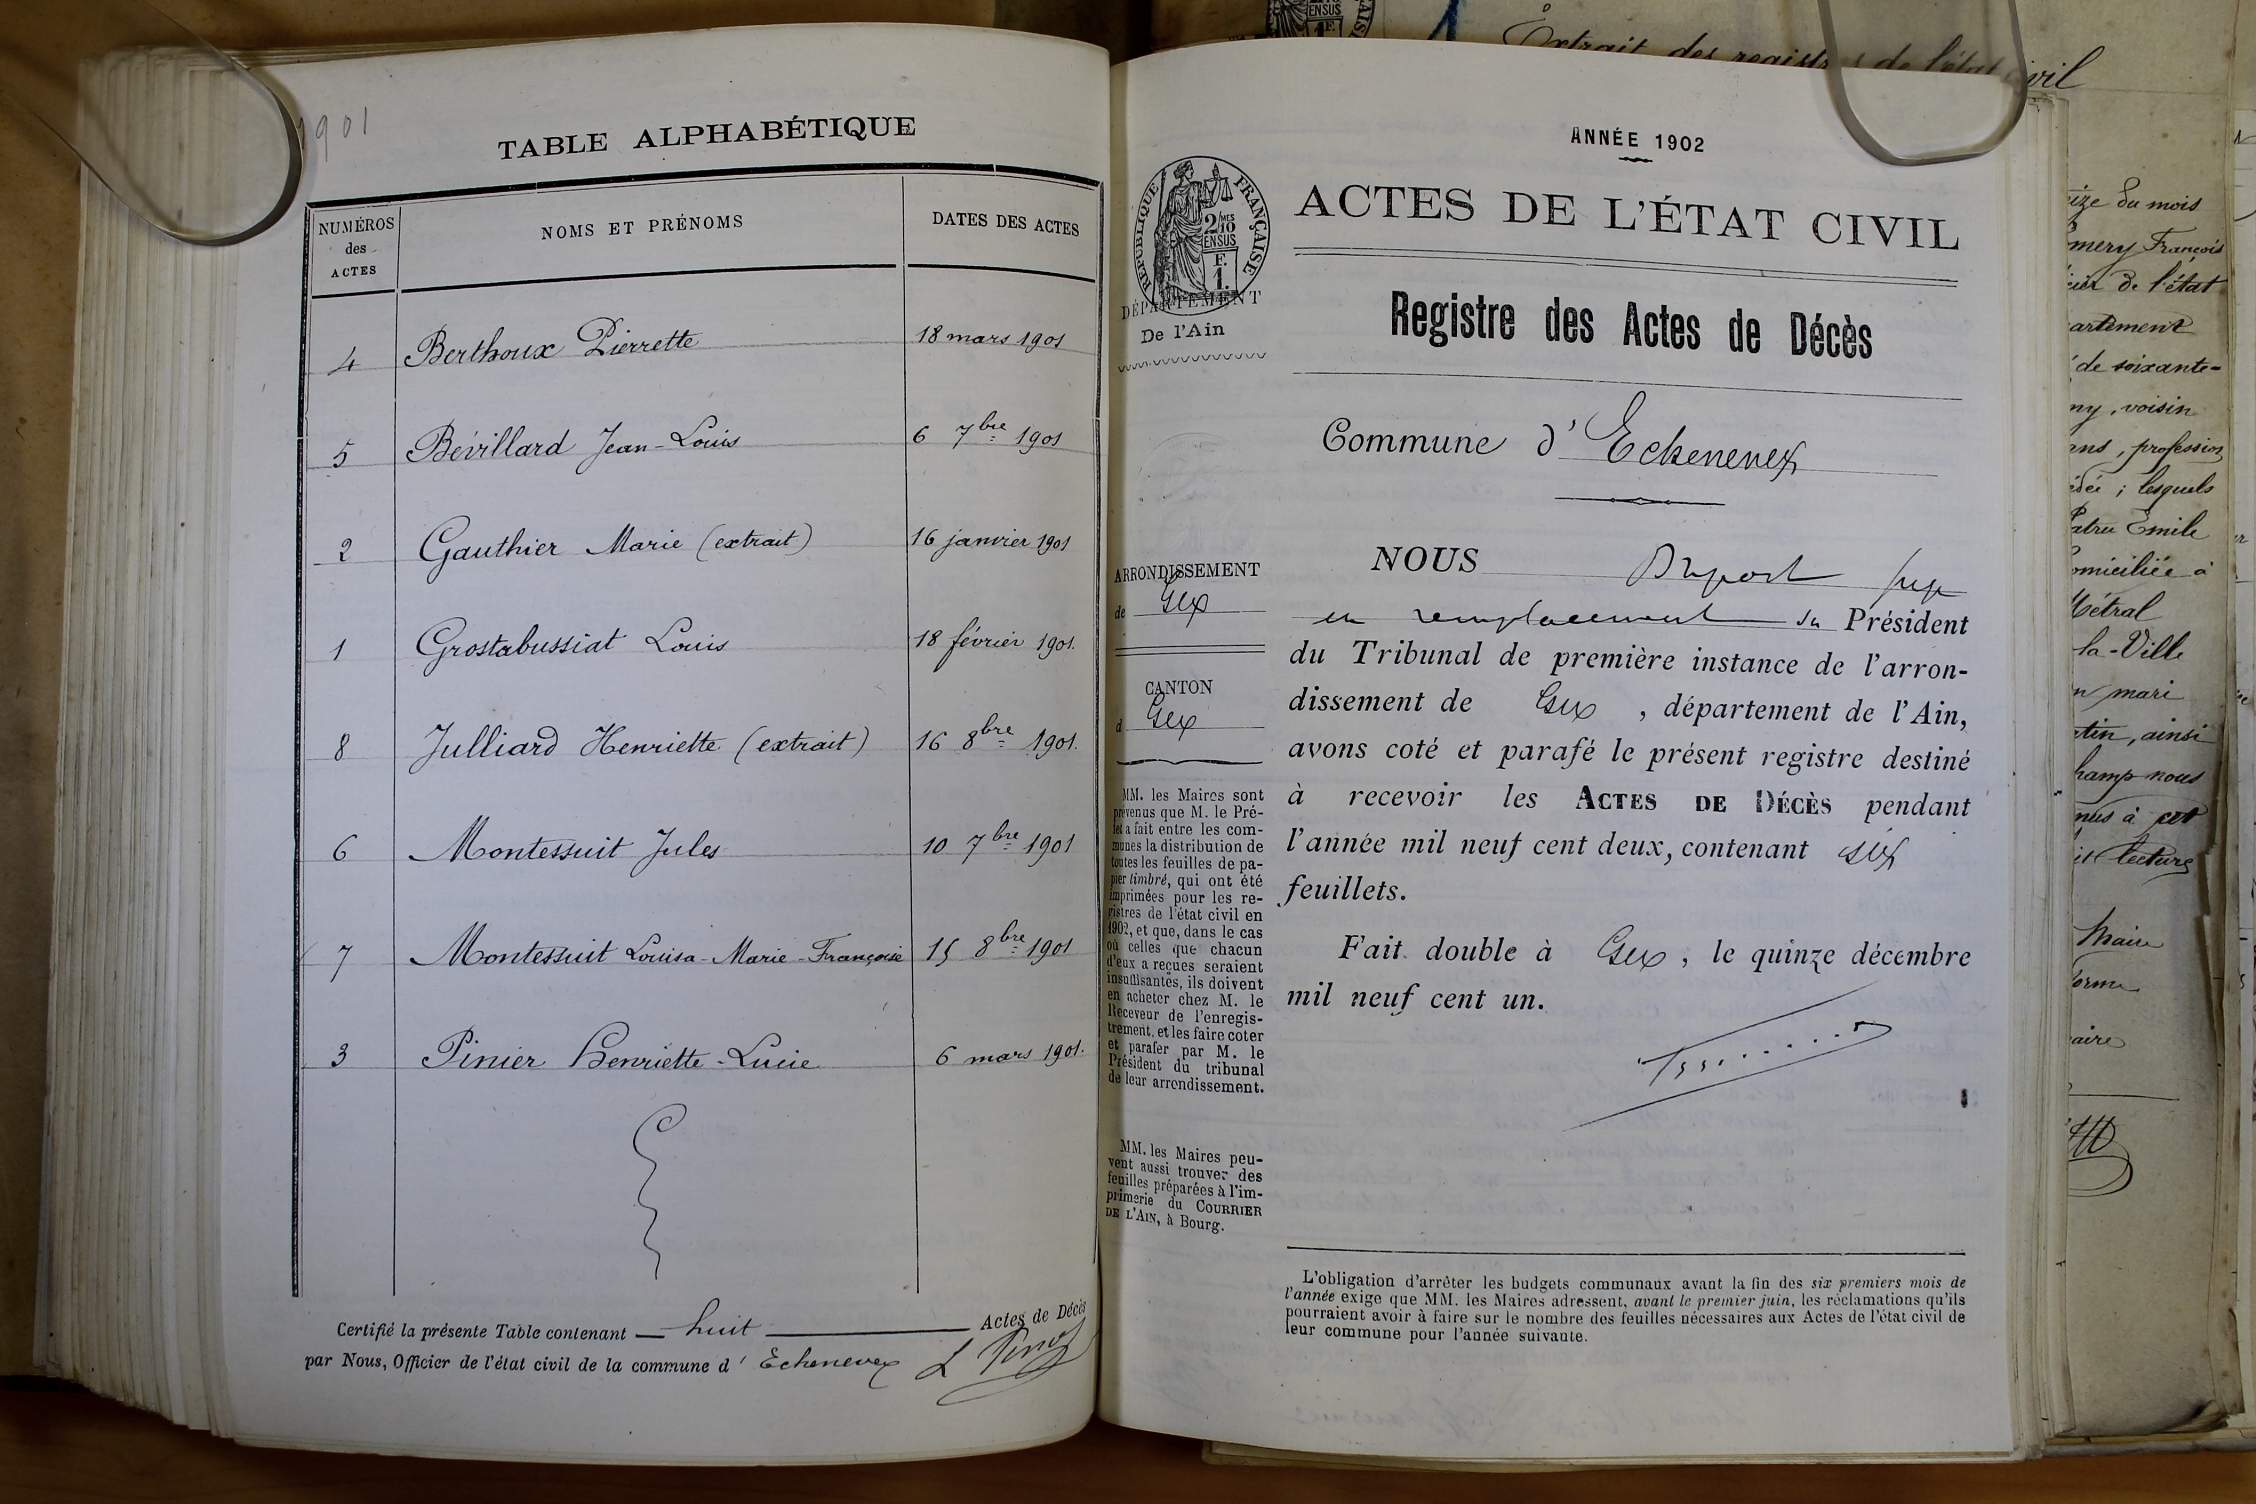 1901
TABLE ALPHABÉTIQUE
NUMÉROS
des
ACTES
NOMS ET PRÉNOMS
DATES DES ACTES
4 Berthoux Pierrette 18 mars 1901
5 Bévillard Jean-Louis 6 7bre 1901
2 Gauthier Marie (extrait) 16 janvier 1901
1 Grostabussiat Louis 18 février 1901.
8 Julliard Henriette (extrait) 16 8bre 1901.
6 Montessuit Jules 10 7bre 1901
7 Montessuit Louisa-Marie-Françoise 15 8bre 1901
3 Pinier Henriette-Lucie 6 mars 1901.
Certifié la présente Table contenant huit Actes de Décès
par Nous, Officier de l'état civil de la commune d' Echenevex
RÉPUBLIQUE FRANÇAISE
2/10MES
EN SUS
F.
1.
DÉPARTEMENT
De l'Ain
ARRONDISSEMENT
de Gex
CANTON
d Gex
MM. les Maires sont
prévenus que M. le Pré-
fet a fait entre les com-
munes la distribution de
toutes les feuilles de pa-
pier timbré, qui ont été
imprimées pour les re-
gistres de l'état civil en
1902, et que, dans le cas
où celles que chacun
d'eux a reçues seraient
insuffisantes, ils doivent
en acheter chez M. le
Receveur de l'enregis-
trement, et les faire coter
et parafer par M. le
Président du tribunal
de leur arrondissement.
MM. les Maires peu-
vent aussi trouver des
feuilles préparées à l'im-
primerie du COURRIER
DE L'AIN, à Bourg.
ANNÉE 1902
ACTES DE L'ÉTAT CIVIL
Registre des Actes de Décès
Commune d' Echenevex
NOUS Duport juge
en remplacement du Président
du Tribunal de première instance de l'arron-
dissement de Gex , département de l'Ain,
avons coté et parafé le présent registre destiné
à recevoir les ACTES DE DÉCÈS pendant
l'année mil neuf cent deux, contenant six
feuillets.
Fait double à Gex , le quinze décembre
mil neuf cent un.
L'obligation d'arrêter les budgets communaux avant la fin des six premiers mois de
l'année exige que MM. les Maires adressent, avant le premier juin, les réclamations qu'ils
pourraient avoir à faire sur le nombre des feuilles nécessaires aux Actes de l'état civil de
leur commune pour l'année suivante.
EN SUS
Extrait des registres de l'état civil
du mois
François
de l'état
de soixante-
, voisin
ans, profession
; lesquels
Emile
à
Métral
la-Ville
mari
, ainsi
nous
à cet
lecture
Maire